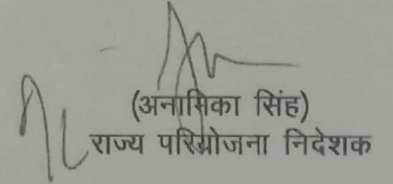 (अनामिका सिंह)
राज्य परियोजना निदेशक